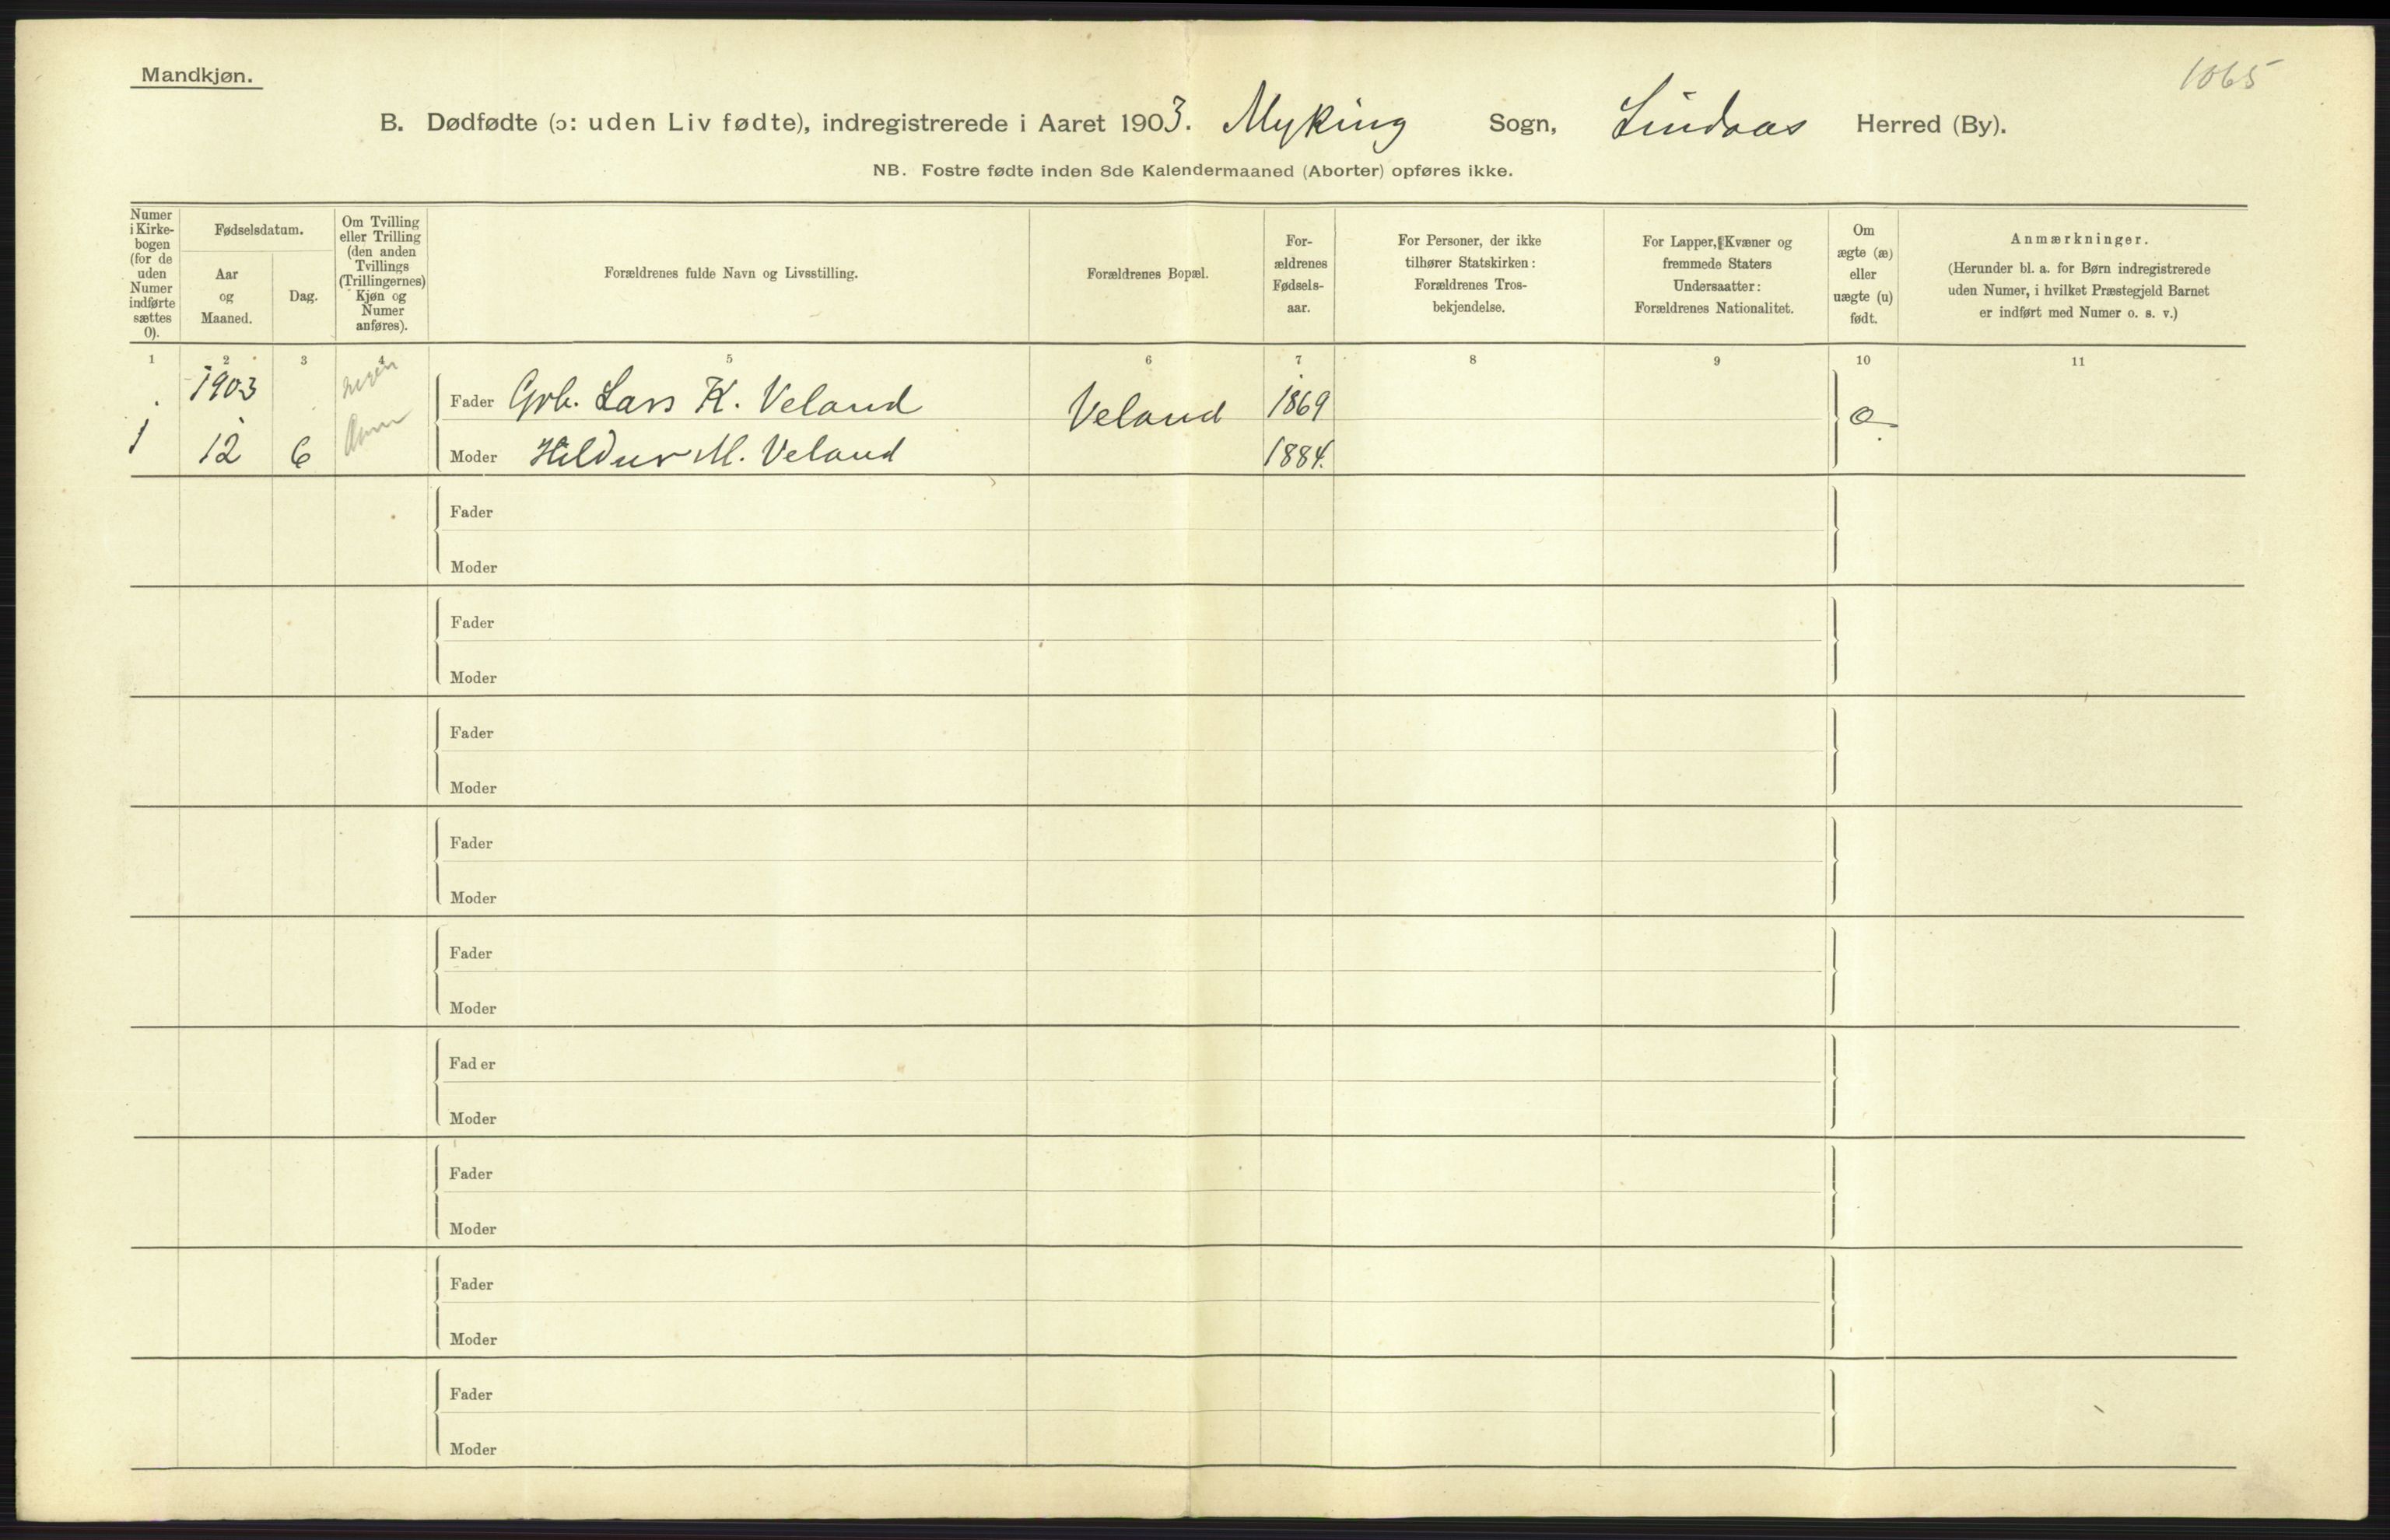 Mandkjøn.
1065
B. Dødfødte (ɔ: uden Liv fødte), indregistrerede i Aaret 1903. Myking Sogn, Lindaas Herred (By).
NB. Fostre fødte inden 8de Kalendermaaned (Aborter) opføres ikke.
Numer
i Kirke-
bogen
(for de
uden
Numer
indførte
sættes
0).
Fødselsdatum.
Aar
og
Maaned.
Dag.
Om Tvilling
eller Trilling
(den anden
Tvillings
(Trillingernes)
Kjøn og
Numer
anføres).
Forældrenes fulde Navn og Livsstilling.
Forældrenes Bopæl.
For-
ældrenes
Fødsels-
aar.
For Personer, der ikke
tilhører Statskirken:
Forældrenes Tros-
bekjendelse.
For Lapper, Kvæner og
fremmede Staters
Undersaatter:
Forældrenes Nationalitet.
Om
ægte (æ)
eller
uægte (u)
født.
Anmærkninger.
(Herunder bl. a. for Børn indregistrerede
uden Numer, i hvilket Præstegjeld Barnet
er indført med Numer o. s. v.)
1 2 3 4 5 6 7 8 9 10 11
1903
Fader Grb. Lars K. Veland Veland 1869
1 12 6 Moder Hildur M. Veland 1884.
Fader
Moder
Fader
Moder
Fader
Moder
Fader
Moder
Fader
Moder
Fader
Moder
Fader
Moder
Fader
Moder
Fader
Moder